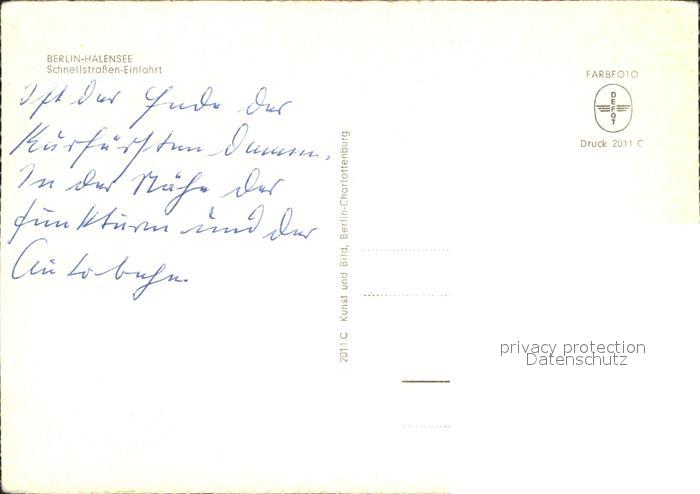 BERLIN-HALENSEE
Schnellstraßen-Einfahrt
Ist der Ende der
Kurfürsten Damm.
In der Nähe der
Funkturm und der
Autobahn.
2011 C Kunst und Bild, Berlin-Charlottenburg
FARBFOTO
DEFOT
Druck 2011 C
privacy protection
Datenschutz